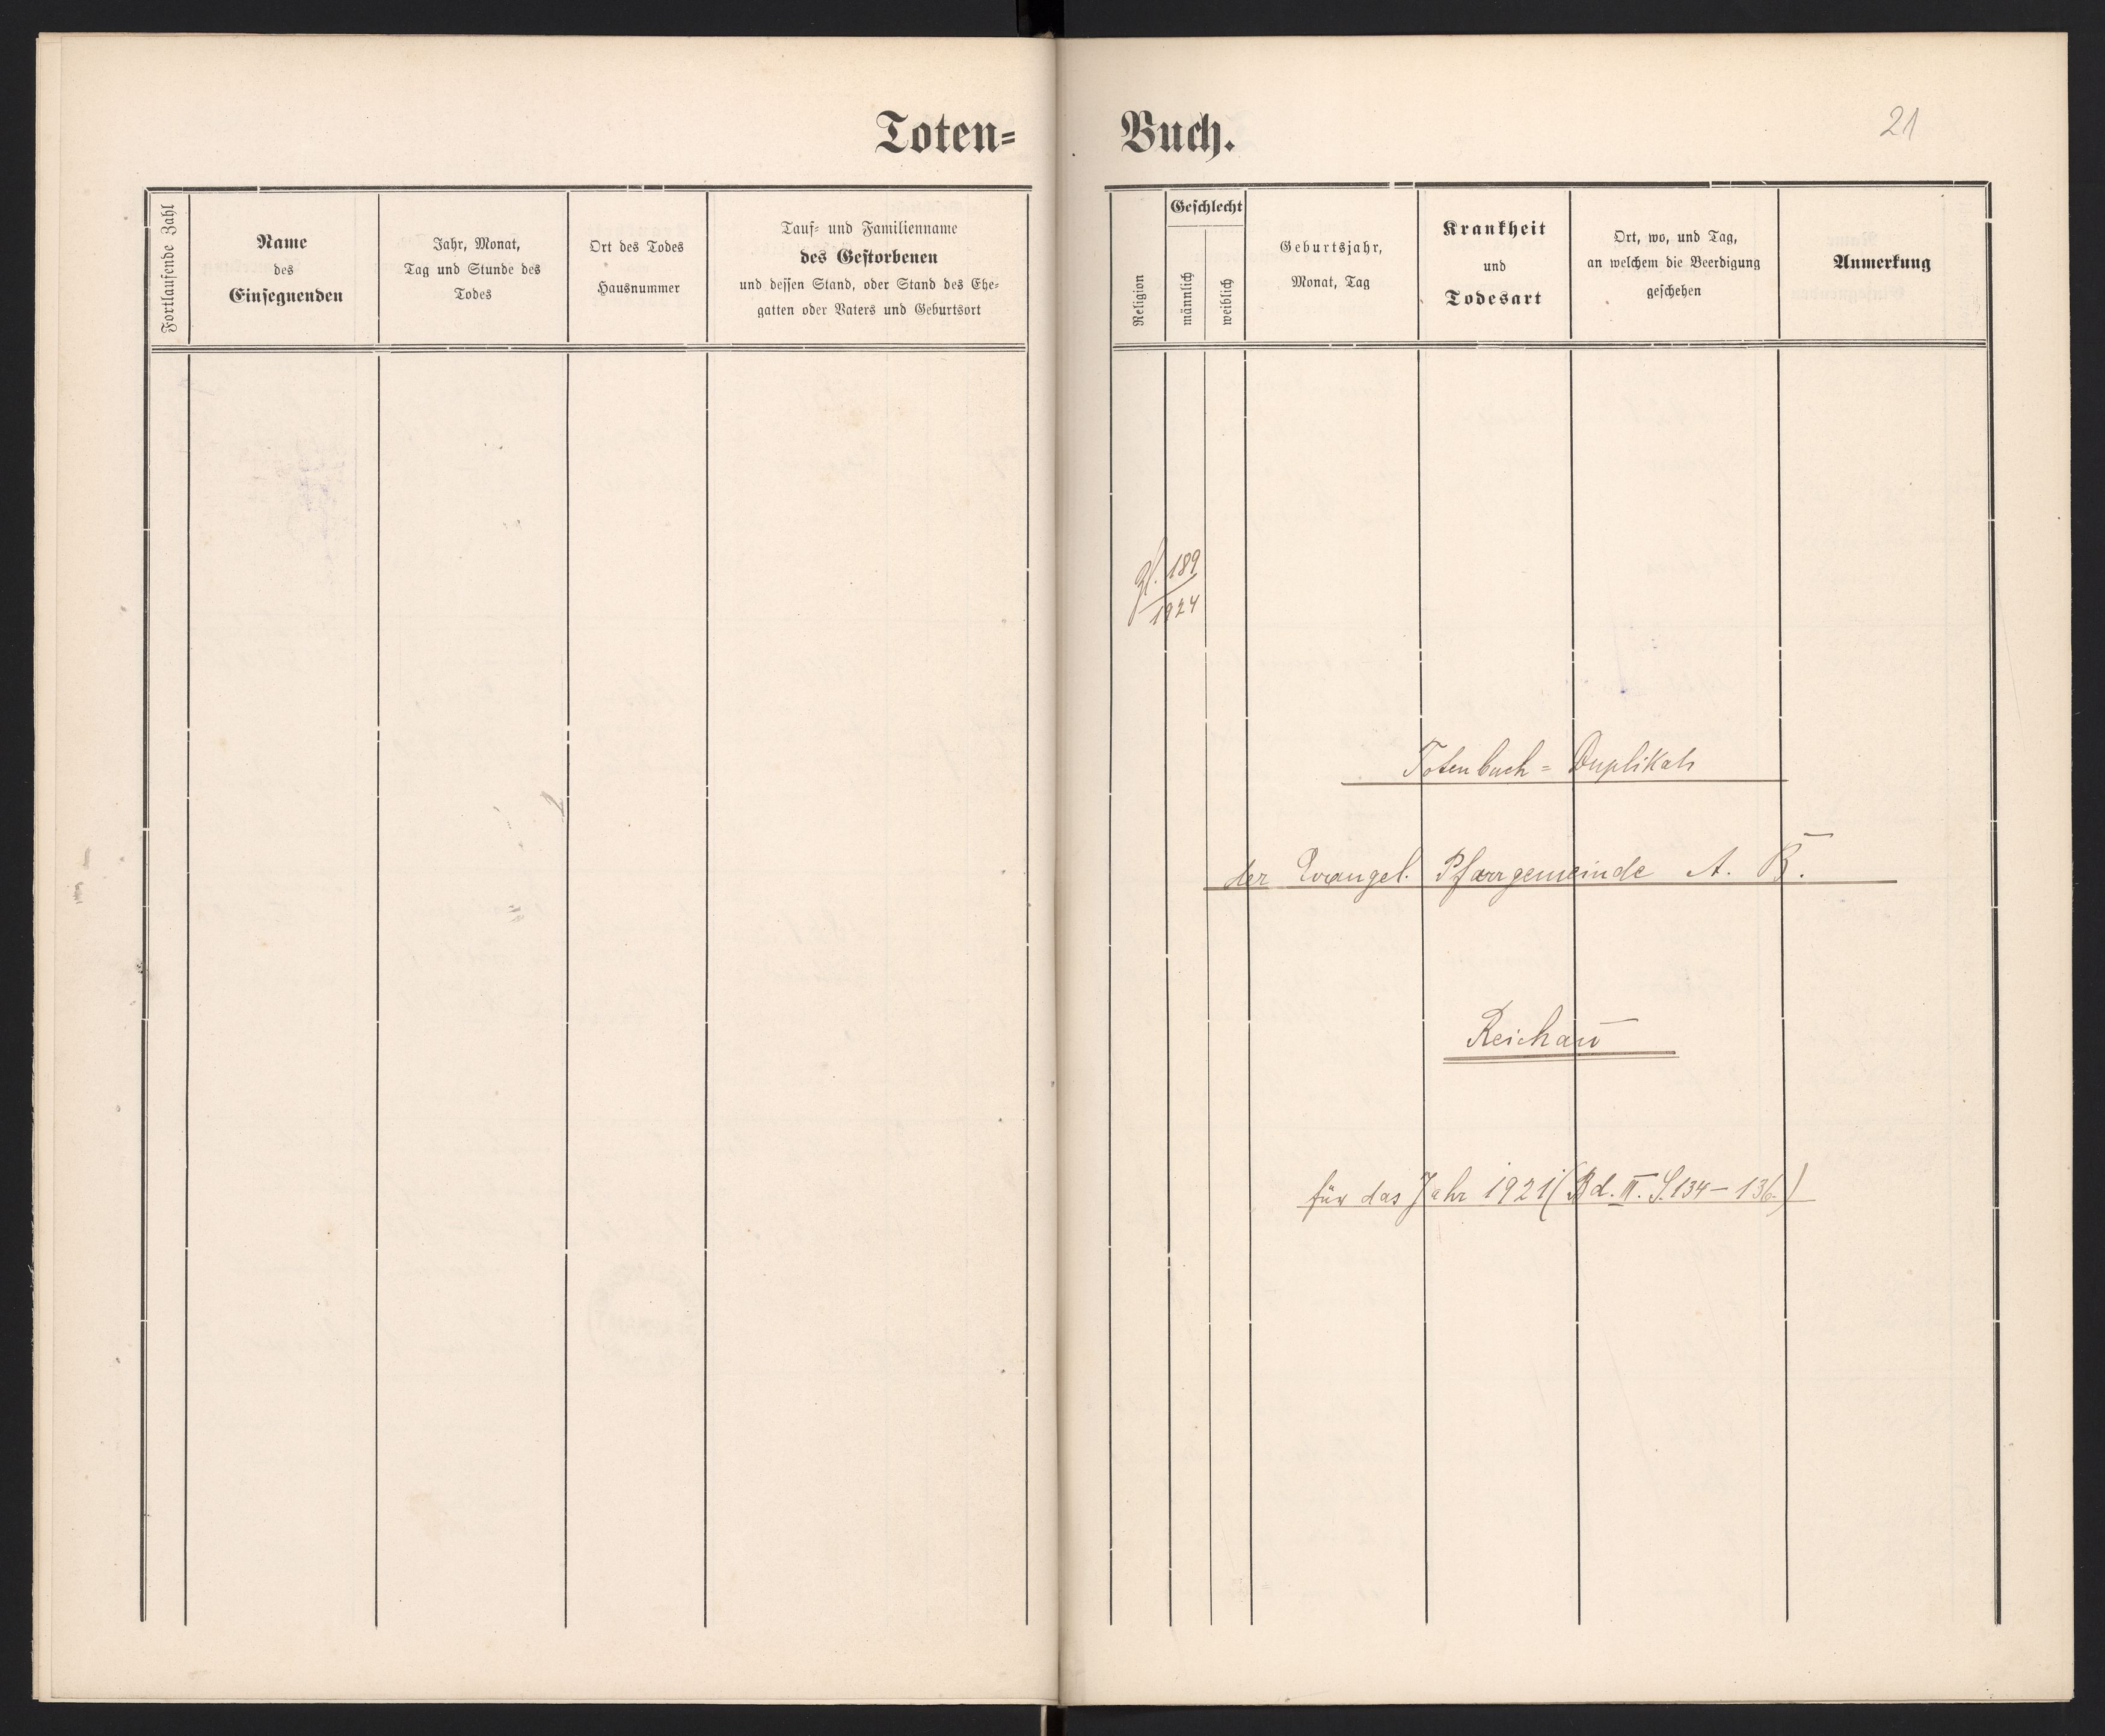 Toten=
Buch.
21
Fortlaufende Zahl
Name
des
Einsegnenden
Jahr, Monat,
Tag und Stunde des
Todes
Ort des Todes
Hausnummer
Tauf= und Familienname
des Gestorbenen
und dessen Stand, oder Stand des Ehe=
gatten oder Vaters und Geburtsort
Religion
Geschlecht
männlich
weiblich
Geburtsjahr,
Monat, Tag
Krankheit
und
Todesart
Ort, wo, und Tag,
an welchem die Beerdigung
geschehen
Anmerkung
Zl. 189
1924
Totenbuch = Duplikat
der Evangel. Pfarrgemeinde A. B.
Reichau
für das Jahr 1921 (Bd. III. S. 134 – 136.)